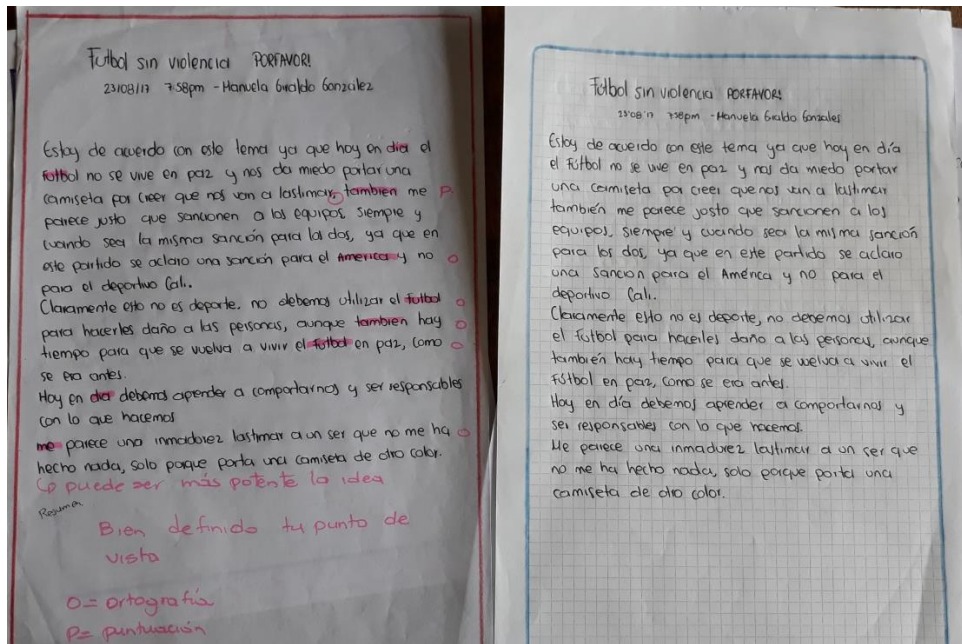 Futbol sin violencia PORFAVOR!
23/08/17 7:58pm - Manuela Giraldo González
Estoy de acuerdo con este tema ya que hoy en dia el
futbol no se vive en paz y nos da miedo portar una
camiseta por creer que nos van a lastimar, tambien me P.
parece justo que sancionen a los equipos, siempre y
cuando sea la misma sanción para los dos, ya que en
este partido se aclaro una sanción para el America y no o
para el deportivo Cali.
Claramente esto no es deporte. no debemos utilizar el futbol o
para hacerles daño a las personas, aunque tambien hay o
tiempo para que se vuelva a vivir el futbol en paz, como o
se era antes.
Hoy en dia debemos aprender a comportarnos y ser responsables
con lo que hacemos
me parece una inmadurez lastimar a un ser que no me ha o
hecho nada, solo porque porta una camiseta de otro color.
puede ser más potente la idea
Resumen
Bien definido tu punto de
vista
O= ortografía
P= puntuación
Futbol sin violencia PORFAVOR!
23/08/17 7:58pm - Manuela Giraldo Gonzales
Estoy de acuerdo con este tema ya que hoy en día
el fútbol no se vive en paz y nos da miedo portar
una camiseta por creer que nos van a lastimar
también me parece justo que sancionen a los
equipos, siempre y cuando sea la misma sanción
para los dos, ya que en este partido se aclaro
una sancion para el América y no para el
deportivo Cali.
Claramente esto no es deporte, no debemos utilizar
el fútbol para hacerles daño a las personas, aunque
también hay tiempo para que se vuelva a vivir el
fútbol en paz, como se era antes.
Hoy en día debemos aprender a comportarnos y
ser responsables con lo que hacemos.
Me parece una inmadurez lastimar a un ser que
no me ha hecho nada, solo porque porta una
camiseta de otro color.